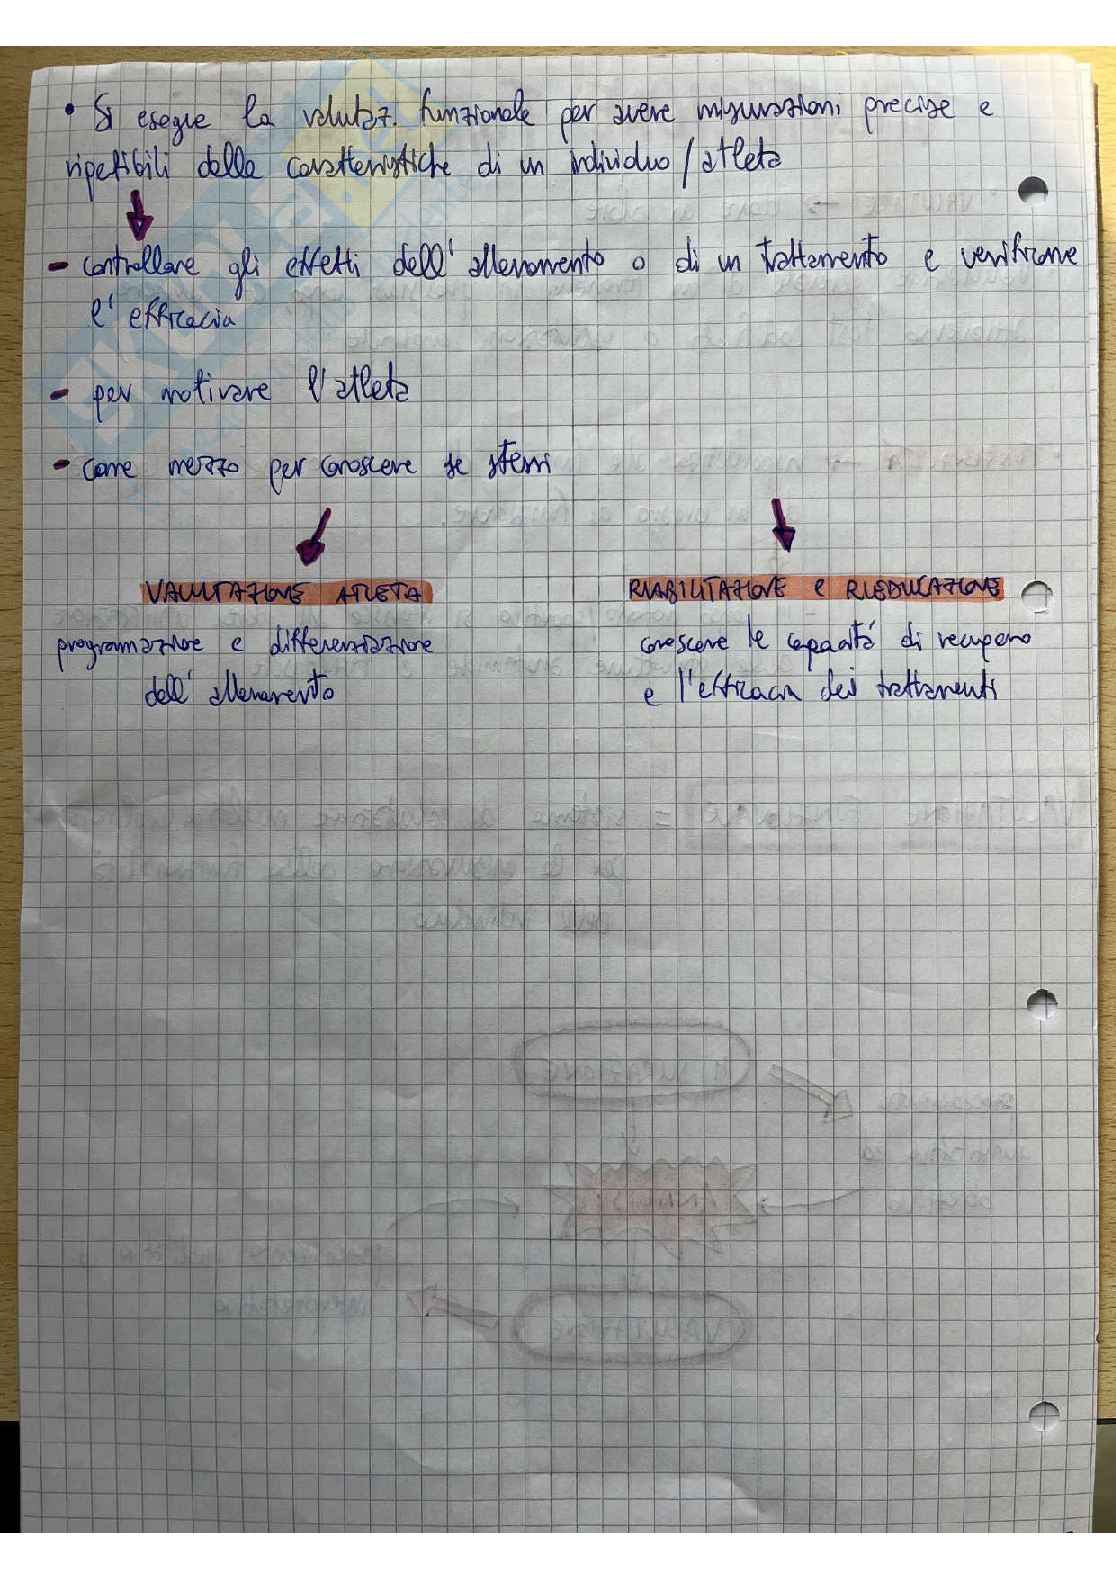 • Si esegue la valutaz. funzionale per avere misurazioni precise e
ripetibili delle caratteristiche di un individuo / atleta
- controllare gli effetti dell' allenamento o di un trattamento e verificarne
l' efficacia
- per motivare l' atleta
- come mezzo per conoscere se stessi
VALUTAZIONE ATLETA
programmazione e differenziazione
dell' allenamento
RIABILITAZIONE e RIEDUCAZIONE
conoscere le capacità di recupero
e l'efficacia dei trattamenti